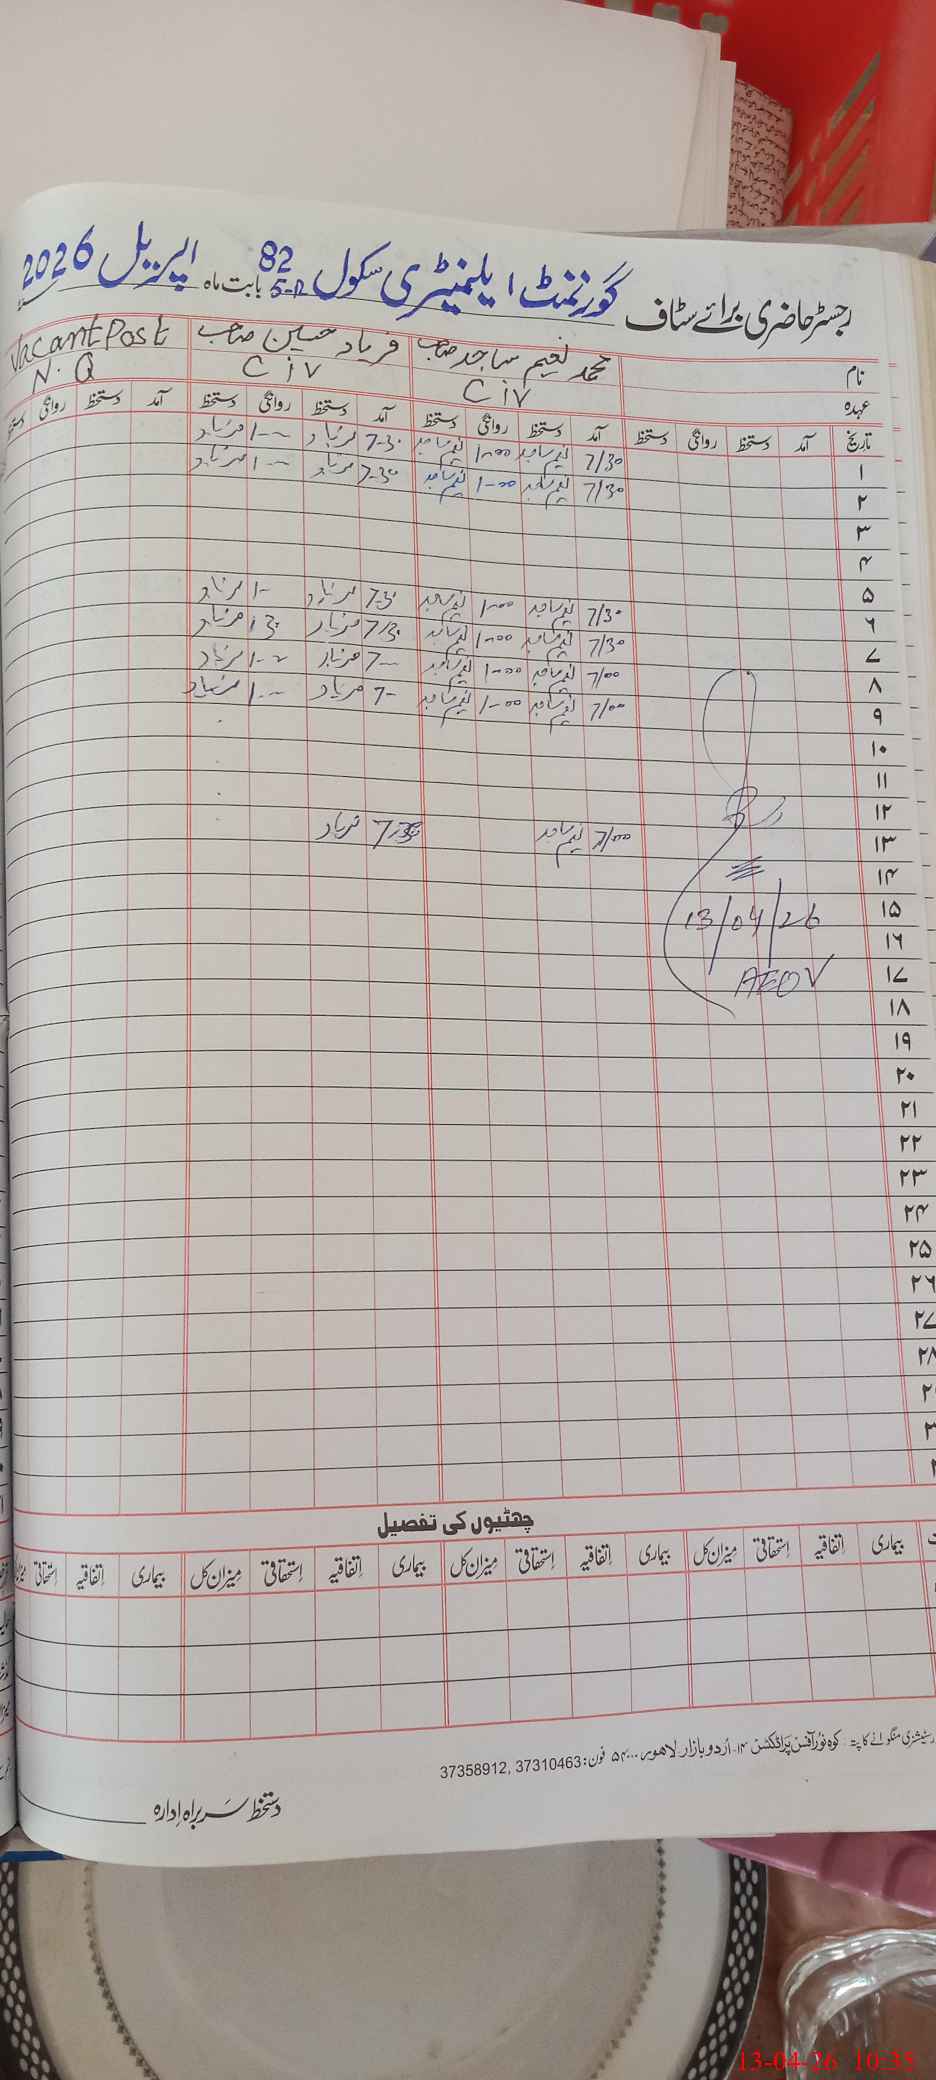 رجسٹر حاضری برائے سٹاف گورنمنٹ ایلیمنٹری سکول 82 5-R بابت ماہ اپریل 2026
نام محمد نعیم ساجد صاحب فریاد حسین صاحب Vacant Post
عہدہ C iv C iv N. Q
تاریخ آمد دستخط روانگی دستخط آمد دستخط روانگی دستخط آمد دستخط روانگی دستخط آمد دستخط روانگی دستخط
۱ 7/30 نعیم ساجد 1-00 نعیم ساجد 7-30 فریاد 1-- فریاد
۲ 7/30 نعیم ساجد 1-00 نعیم ساجد 7-30 فریاد 1-- فریاد
۳
۴
۵
۶ 7/30 نعیم ساجد 1-00 نعیم ساجد 7-30 فریاد 1- فریاد
۷ 7/30 نعیم ساجد 1-00 نعیم ساجد 7/30 فریاد فریاد
۸ 7/00 نعیم ساجد 1-00 نعیم ساجد 7-- فریاد 1-- فریاد
۹ 7/00 نعیم ساجد 1-00 نعیم ساجد 7- فریاد 1-- فریاد
۱۰
۱۱
۱۲
۱۳ 7/00 نعیم ساجد فریاد
۱۴
۱۵ 13/04/26
۱۶
۱۷ AEO
۱۸
۱۹
۲۰
۲۱
۲۲
۲۳
۲۴
۲۵
۲۶
۲۷
۲۸
چھٹیوں کی تفصیل
بیماری اتفاقیہ استحقاقی میزان کل بیماری اتفاقیہ استحقاقی میزان کل بیماری اتفاقیہ استحقاقی میزان کل بیماری اتفاقیہ استحقاقی
سٹیشنری منگوانے کا پتہ: کوہ نور آفس پراڈکٹس ۱۴۔ اردو بازار۔ لاہور۔ ۵۴۰۰۰ فون: 37310463, 37358912
دستخط سربراہ ادارہ
13-04-26 10:35